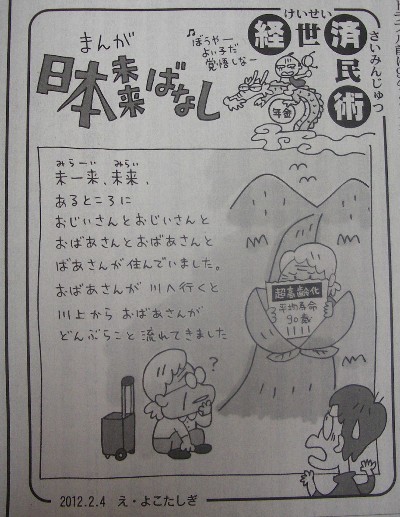 経世済民術
けいせい
さいみんじゅつ
まんが
日本未来ばなし
♪ぼうやー
よい子だ
覚悟しなー
年金
みらーい みらい
未ー来、未来、
あるところに
おじいさんとおじいさんと
おばあさんとおばあさんと
ばあさんが住んでいました。
おばあさんが 川へ行くと
川上から おばあさんが
どんぶらこと 流れてきました
超高齢化
平均寿命
90歳
!!!!
?
2012.2.4 え・よこたしぎ